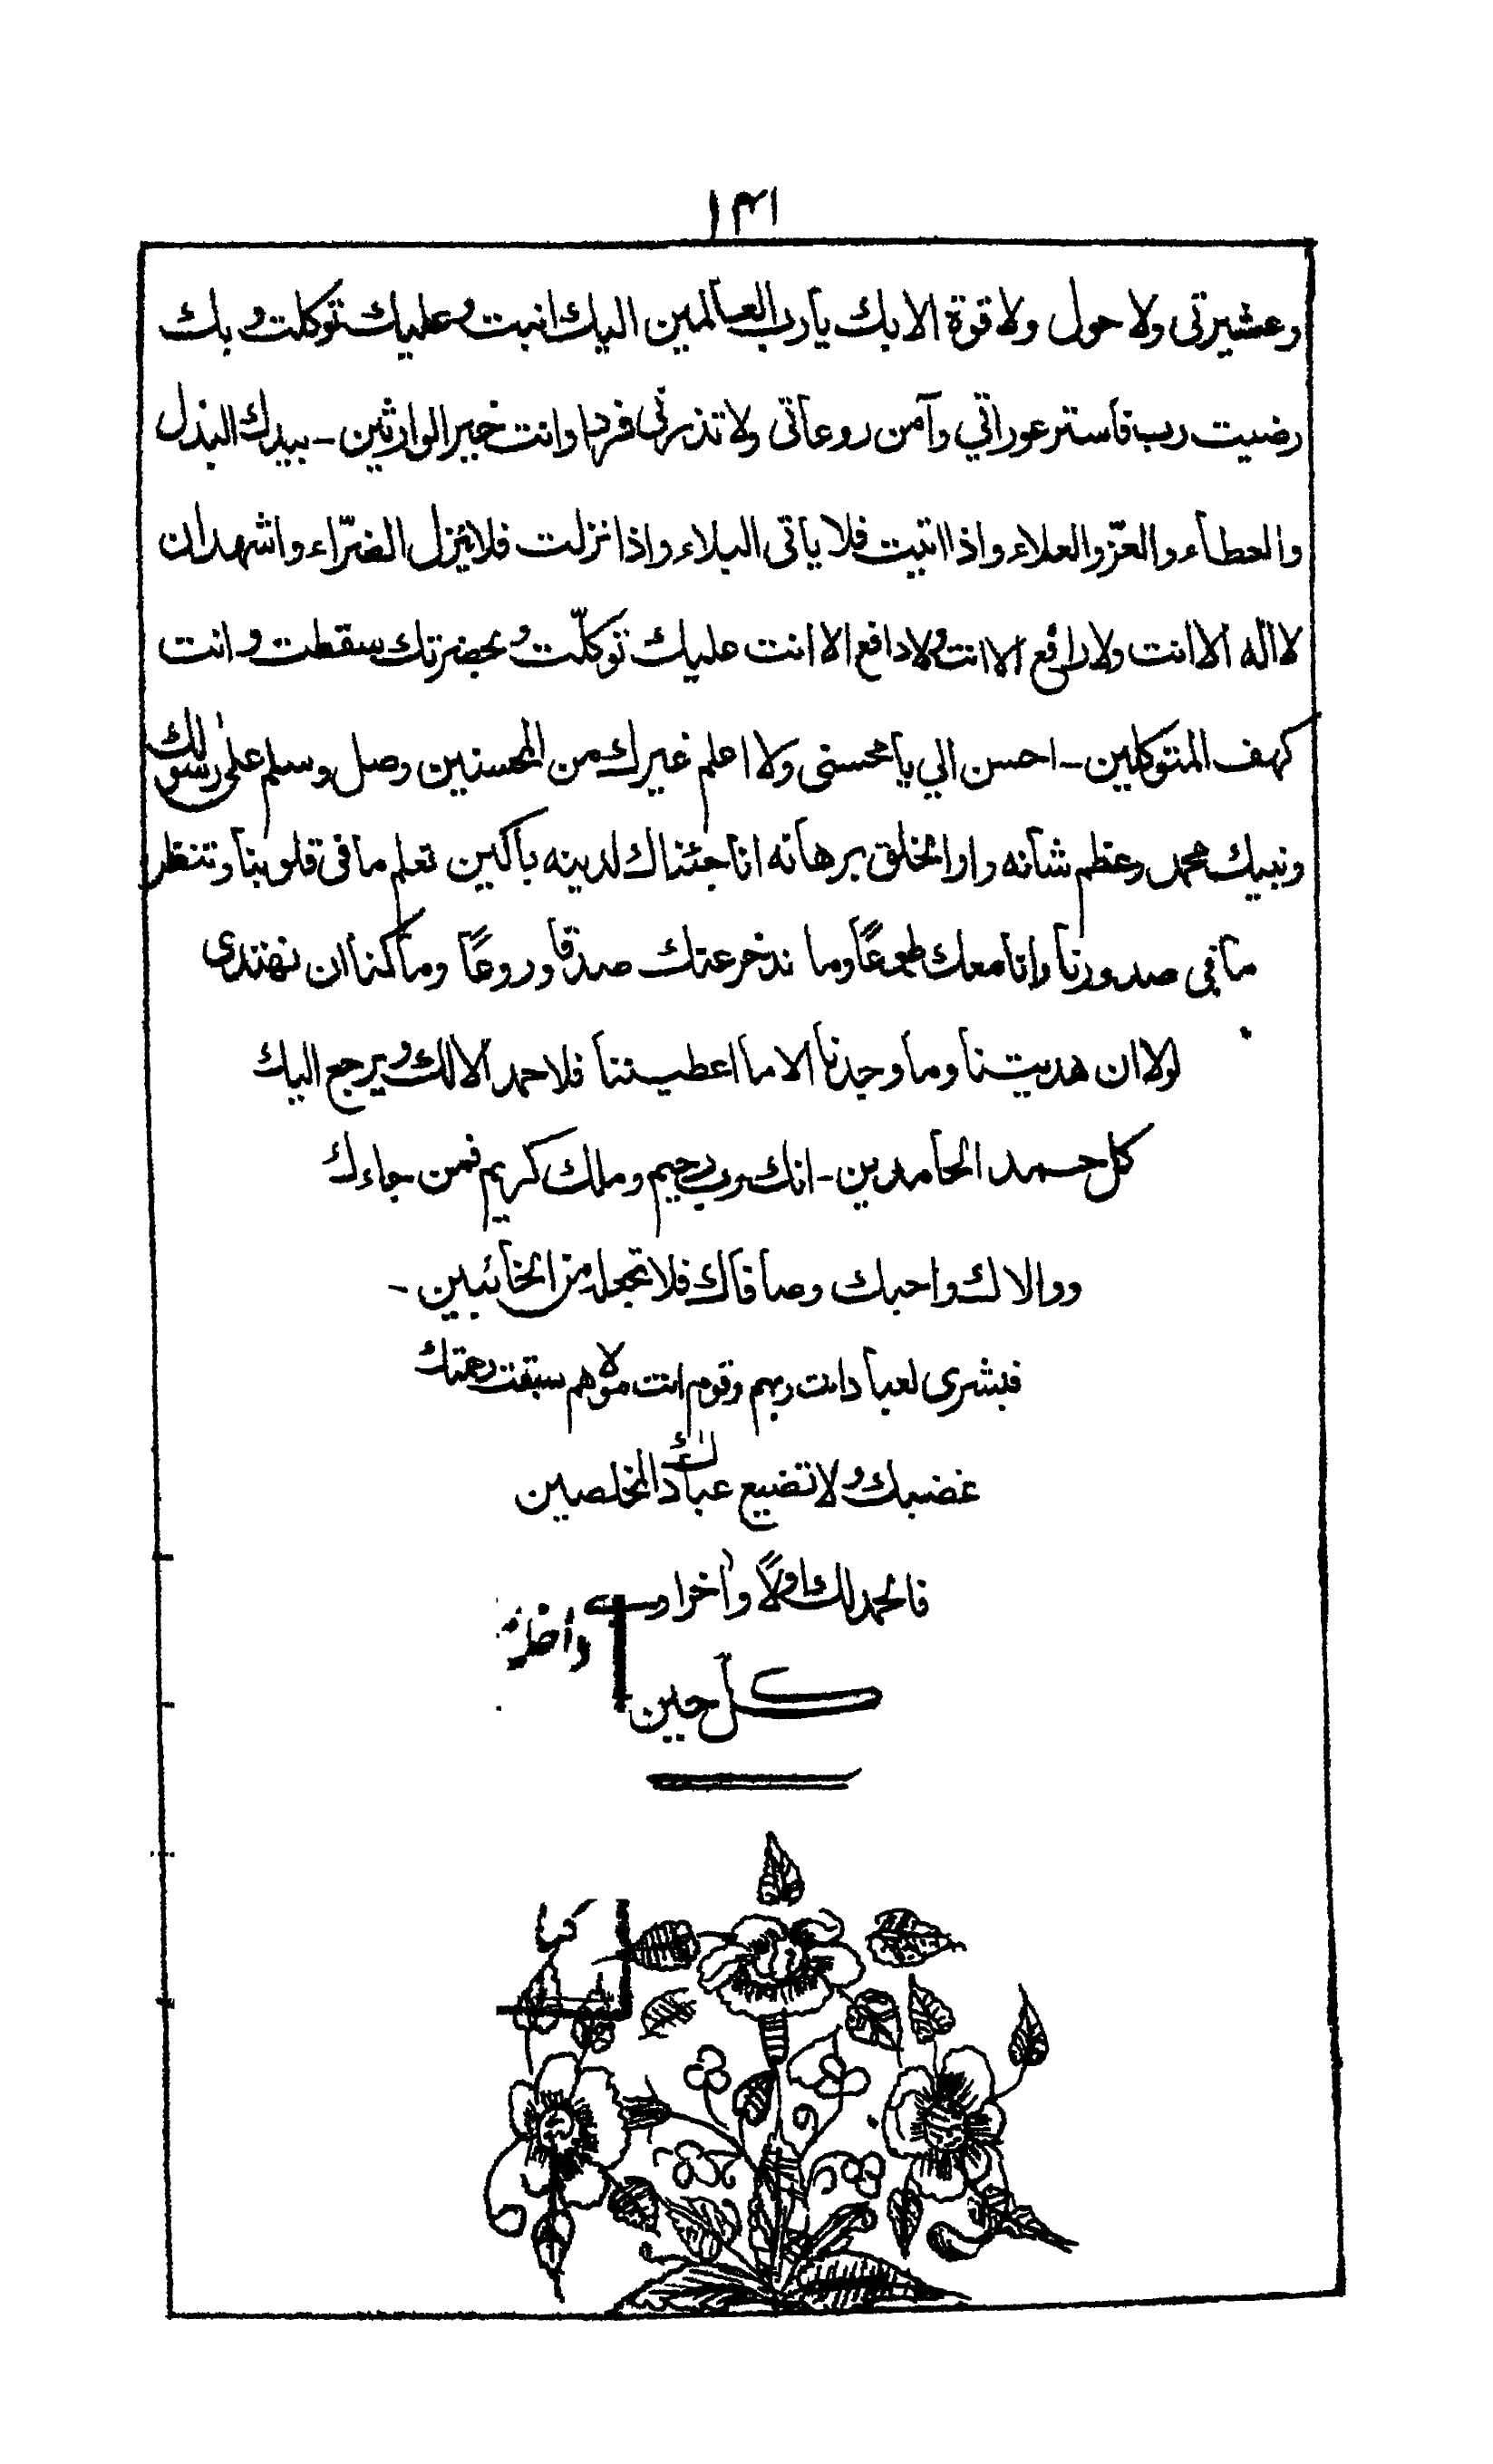 ١٣١
وعشيرتى ولا حول ولا قوة الا بك يا رب العالمين اليك انبت وعليك توكلت وبك
رضيت رب فاستر عوراتي وآمن روعاتى ولا تذرنى فردا وانت خير الوارثين - بيدك البذل
والعطاء والعز والعلاء واذا اتيت فلا ياتى البلاء واذا نزلت فلا ينزل الضرّاء واشهد ان
لا اله الا انت ولا رافع الا انت ولا دافع الا انت عليك توكلّت وبحضرتك سقطت وانت
كهف المتوكلين - احسن الي يا محسنى ولا اعلم غيرك من المحسنين وصل وسلم على رسولك
ونبيك محمد وعظم شانه وار الخلق برهانه انا جئناك لدينه باكين تعلم ما فى قلوبنا وتنظر
ما في صدورنا وانا معك طوعًا وما ندخر عنك صدقا وروعًا وما كنا ان نهتدى
لولا ان هديتنا وما وجدنا الا ما اعطيتنا فلا حمد الا لك ويرجع اليك
كل حمد الحامدين - انك رب رحيم وملك كريم فمن جاءك
ووالاك واحبك وصافاك فلا تجعله من الخائبين -
فبشرى لعباد انت ربهم وقوم انت مولاهم سبقت رحمتك
غضبك ولا تضيع عبادك المخلصين
فالحمد لك اولًا واٰخرا و
كل حين